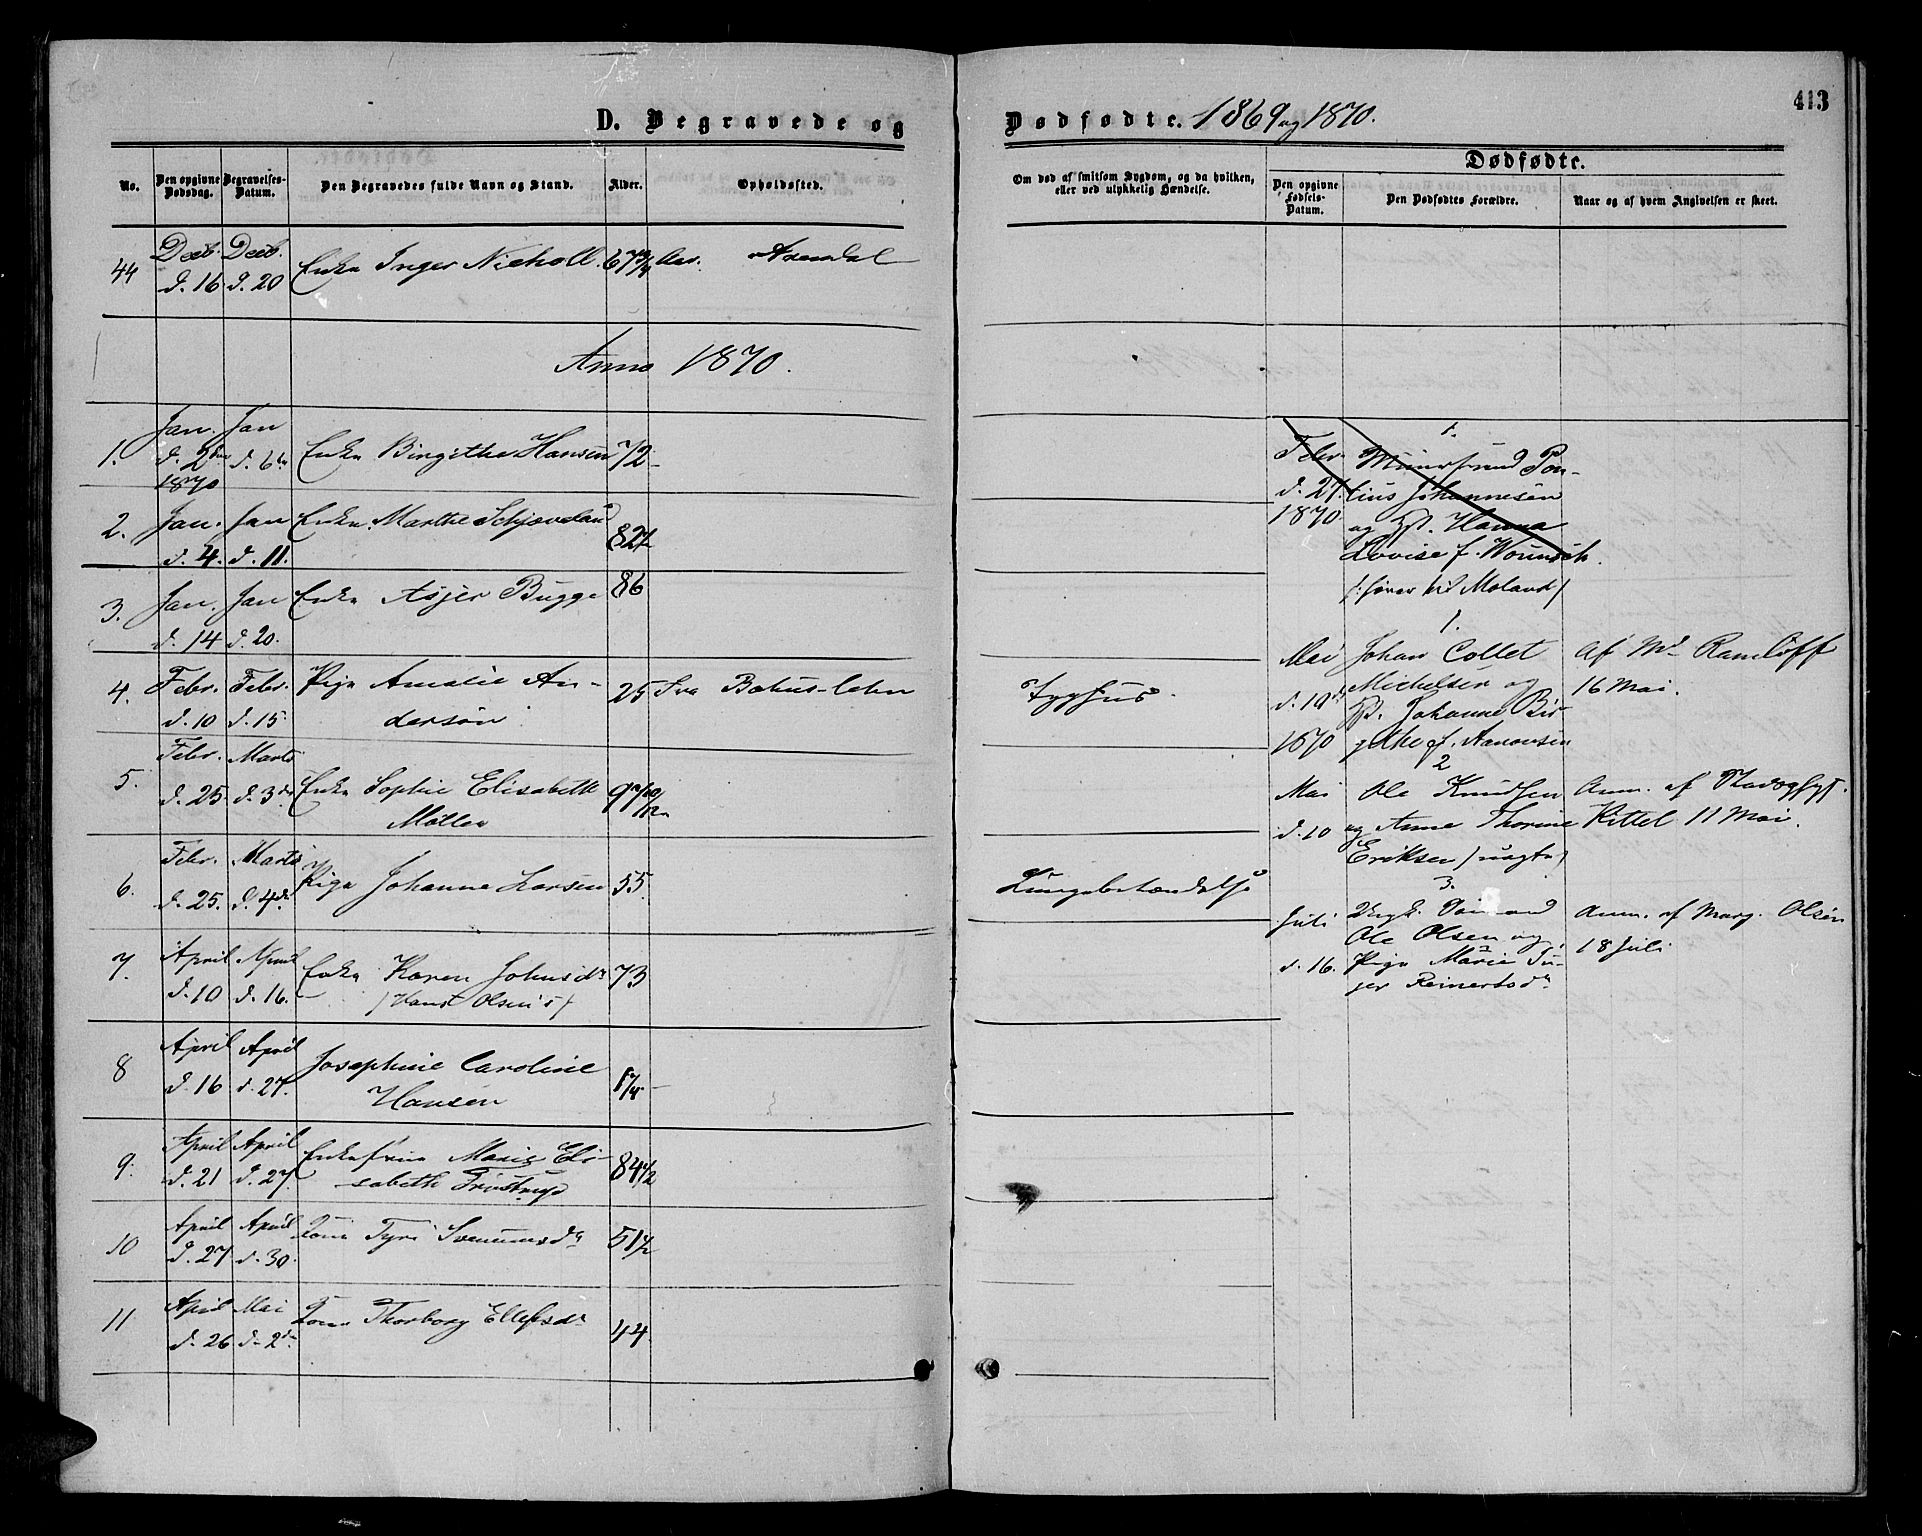 D. Begravede og
Dødfødte. 1869 og 1870.
413
No.
Den opgivne Dødsdag.
Begravelses-Datum.
Den Begravedes fulde Navn og Stand.
Alder.
Opholdssted.
Om død af smitsom Sygdom, og da hvilken, eller ved ulykkelig Hændelse.
Dødfødte.
Den opgivne Fødsels-Datum.
Den Dødfødtes Forældre.
Naar og af hvem Angivelsen er skeet.
44 Decb. Decb. Enke Inger Nicholl. 67 3/4 Aar. Arendal
d. 16 d. 20
Anno 1870.
1. Jan. Jan Enke Birgithe Hansen 72
d. 2den d. 6te
1870
2. Jan. Jan Enke Marthe 82 1/2
d. 4. d. 11.
3. Jan. Jan Enke Asjer Bugge 86
d. 14 d. 20.
4. Febr. Febr. Pige Amalie An- 25 Fra Bahus-lehn Tyfus
d. 10 d. 15. dersøn
5. Febr. Marts Enke Sophie Elisabeth
d. 25. d. 3de Møller
6. Febr. Marts Pige Johanne Larsen 55. Lungebetændelse
d. 25. d. 4de
7. April April Enke Karen Johnsdr 73
d. 10 d. 16. (Hans Olsen's)
8 April April Josephine Caroline
d. 16 d. 27. Hansen
9. April April Enkefrue Marie Eli- 84 1/2
d. 21 d. 27. sabeth
10 April April Kone Tyri 51 1/2
d. 27 d. 30.
11 April Mai Kone Thorborg Ellefsdr 44
d. 26 d. 2den
1.
Febr. Pon-
d. 27. tius Johannesen
1870 og Hst. Hanna
Lovise f.
(: fører til Moland)
1.
Mai Johan Collet Af Md Ramløff
d. 10de Michelsen og 16 Mai.
Hst. Johanne Bir-
1870 githe f. Aanonsen
2
Mai Ole Knudsen Anm. af
d. 10 og Anne Thorine Kittel 11 Mai.
Eriksen (uægte)
3.
Juli Ungk. Sømand Anm. af Marg. Olsen
Ole Olsen og 18 Juli
d. 16. Pige Marie In-
ger Reinertsdr